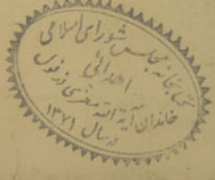 کتابخانه مجلس شورای اسلامی
اهدائی
خاندان آیة الله مغزی دزفولی
در سال ۱۳۷۱